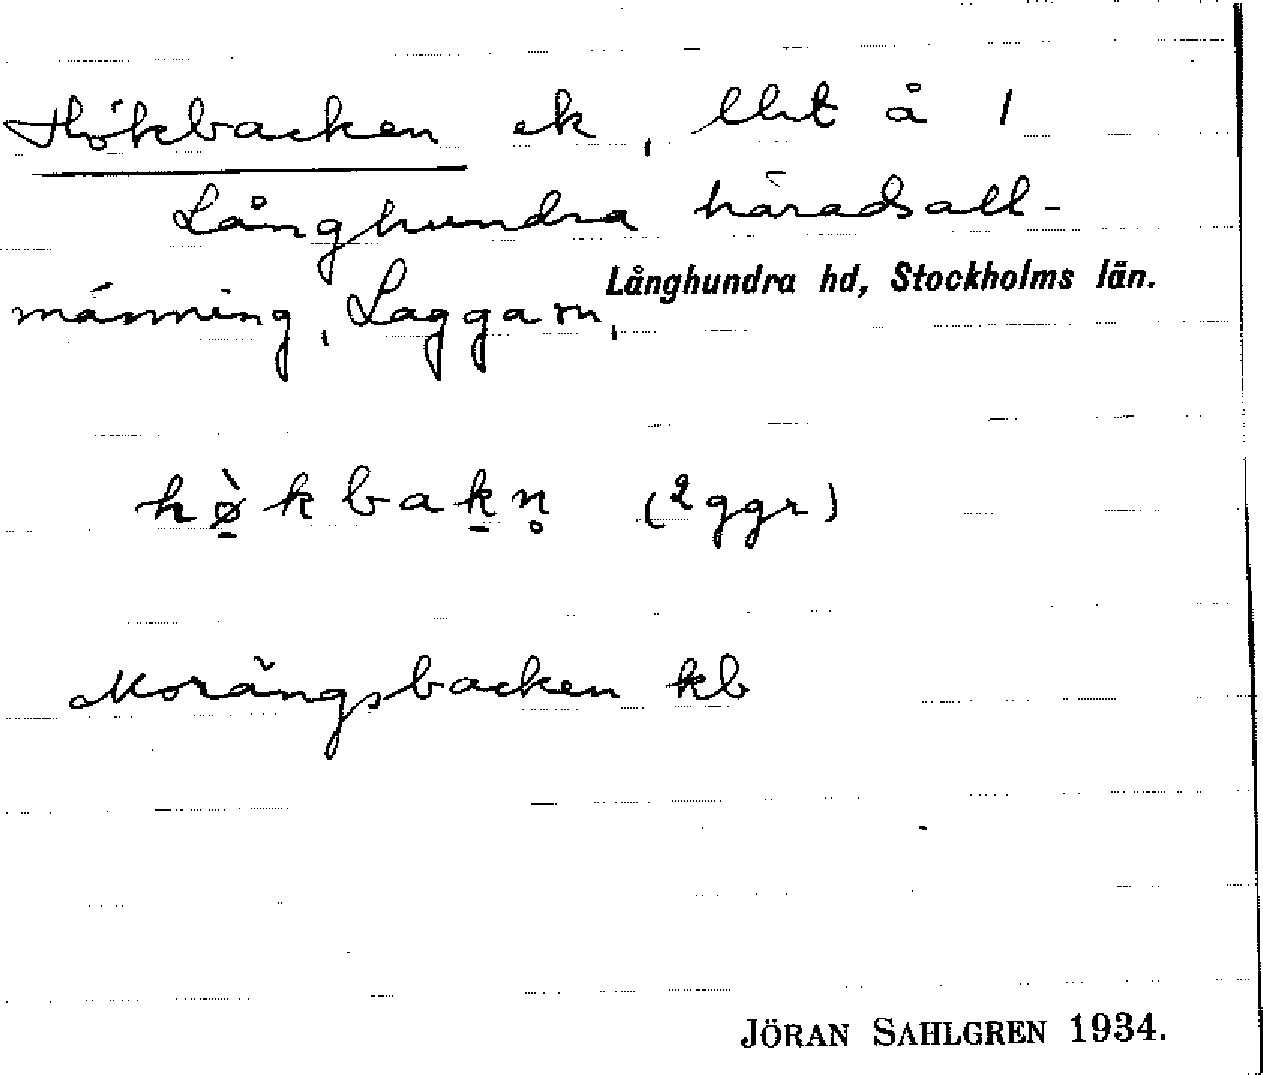 Hökbacken ek, llit å 1
Långhundra häradsall-
männing, Laggarn,
Långhundra hd, Stockholms län.
hø̀kbakn̥ (2 ggr)
Morängsbacken kb
JÖRAN SAHLGREN 1934.